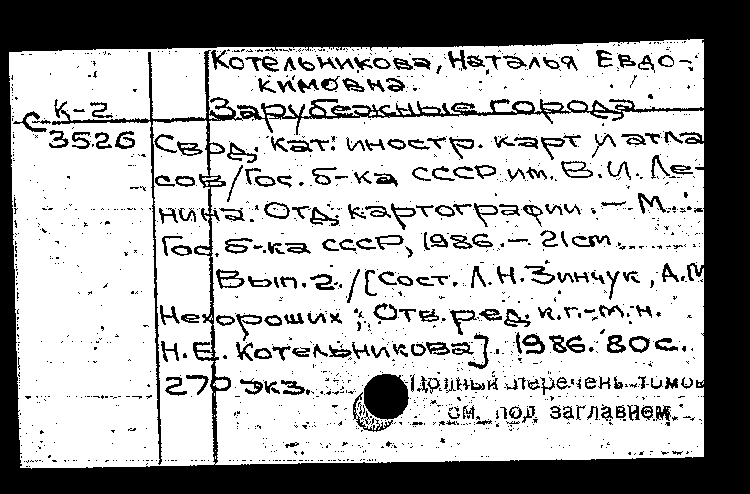 Котельникова, Наталья Евдо-
кимовна.
К-2
Зарубежные города.
С
3526
Свод. кат. иностр. карт и атла
сов/Гос. б-ка СССР им. В.И. Ле-
нина. Отд. картографии. — М.:
Гос. б-ка СССР, 1986. — 21 см.
Вып. 2. / [Сост. Л.Н. Зинчук, А.М
Нехороших; Отв. ред. к.г.-м.н.
Н.Е. Котельникова]. 1986. 80 с.
270 экз.
Полный перечень томов
см. под заглавием.